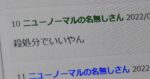 10 ニューノーマルの名無しさん 2022/
殺処分でいいやん
11 ニューノーマルの名無しさん 2022/